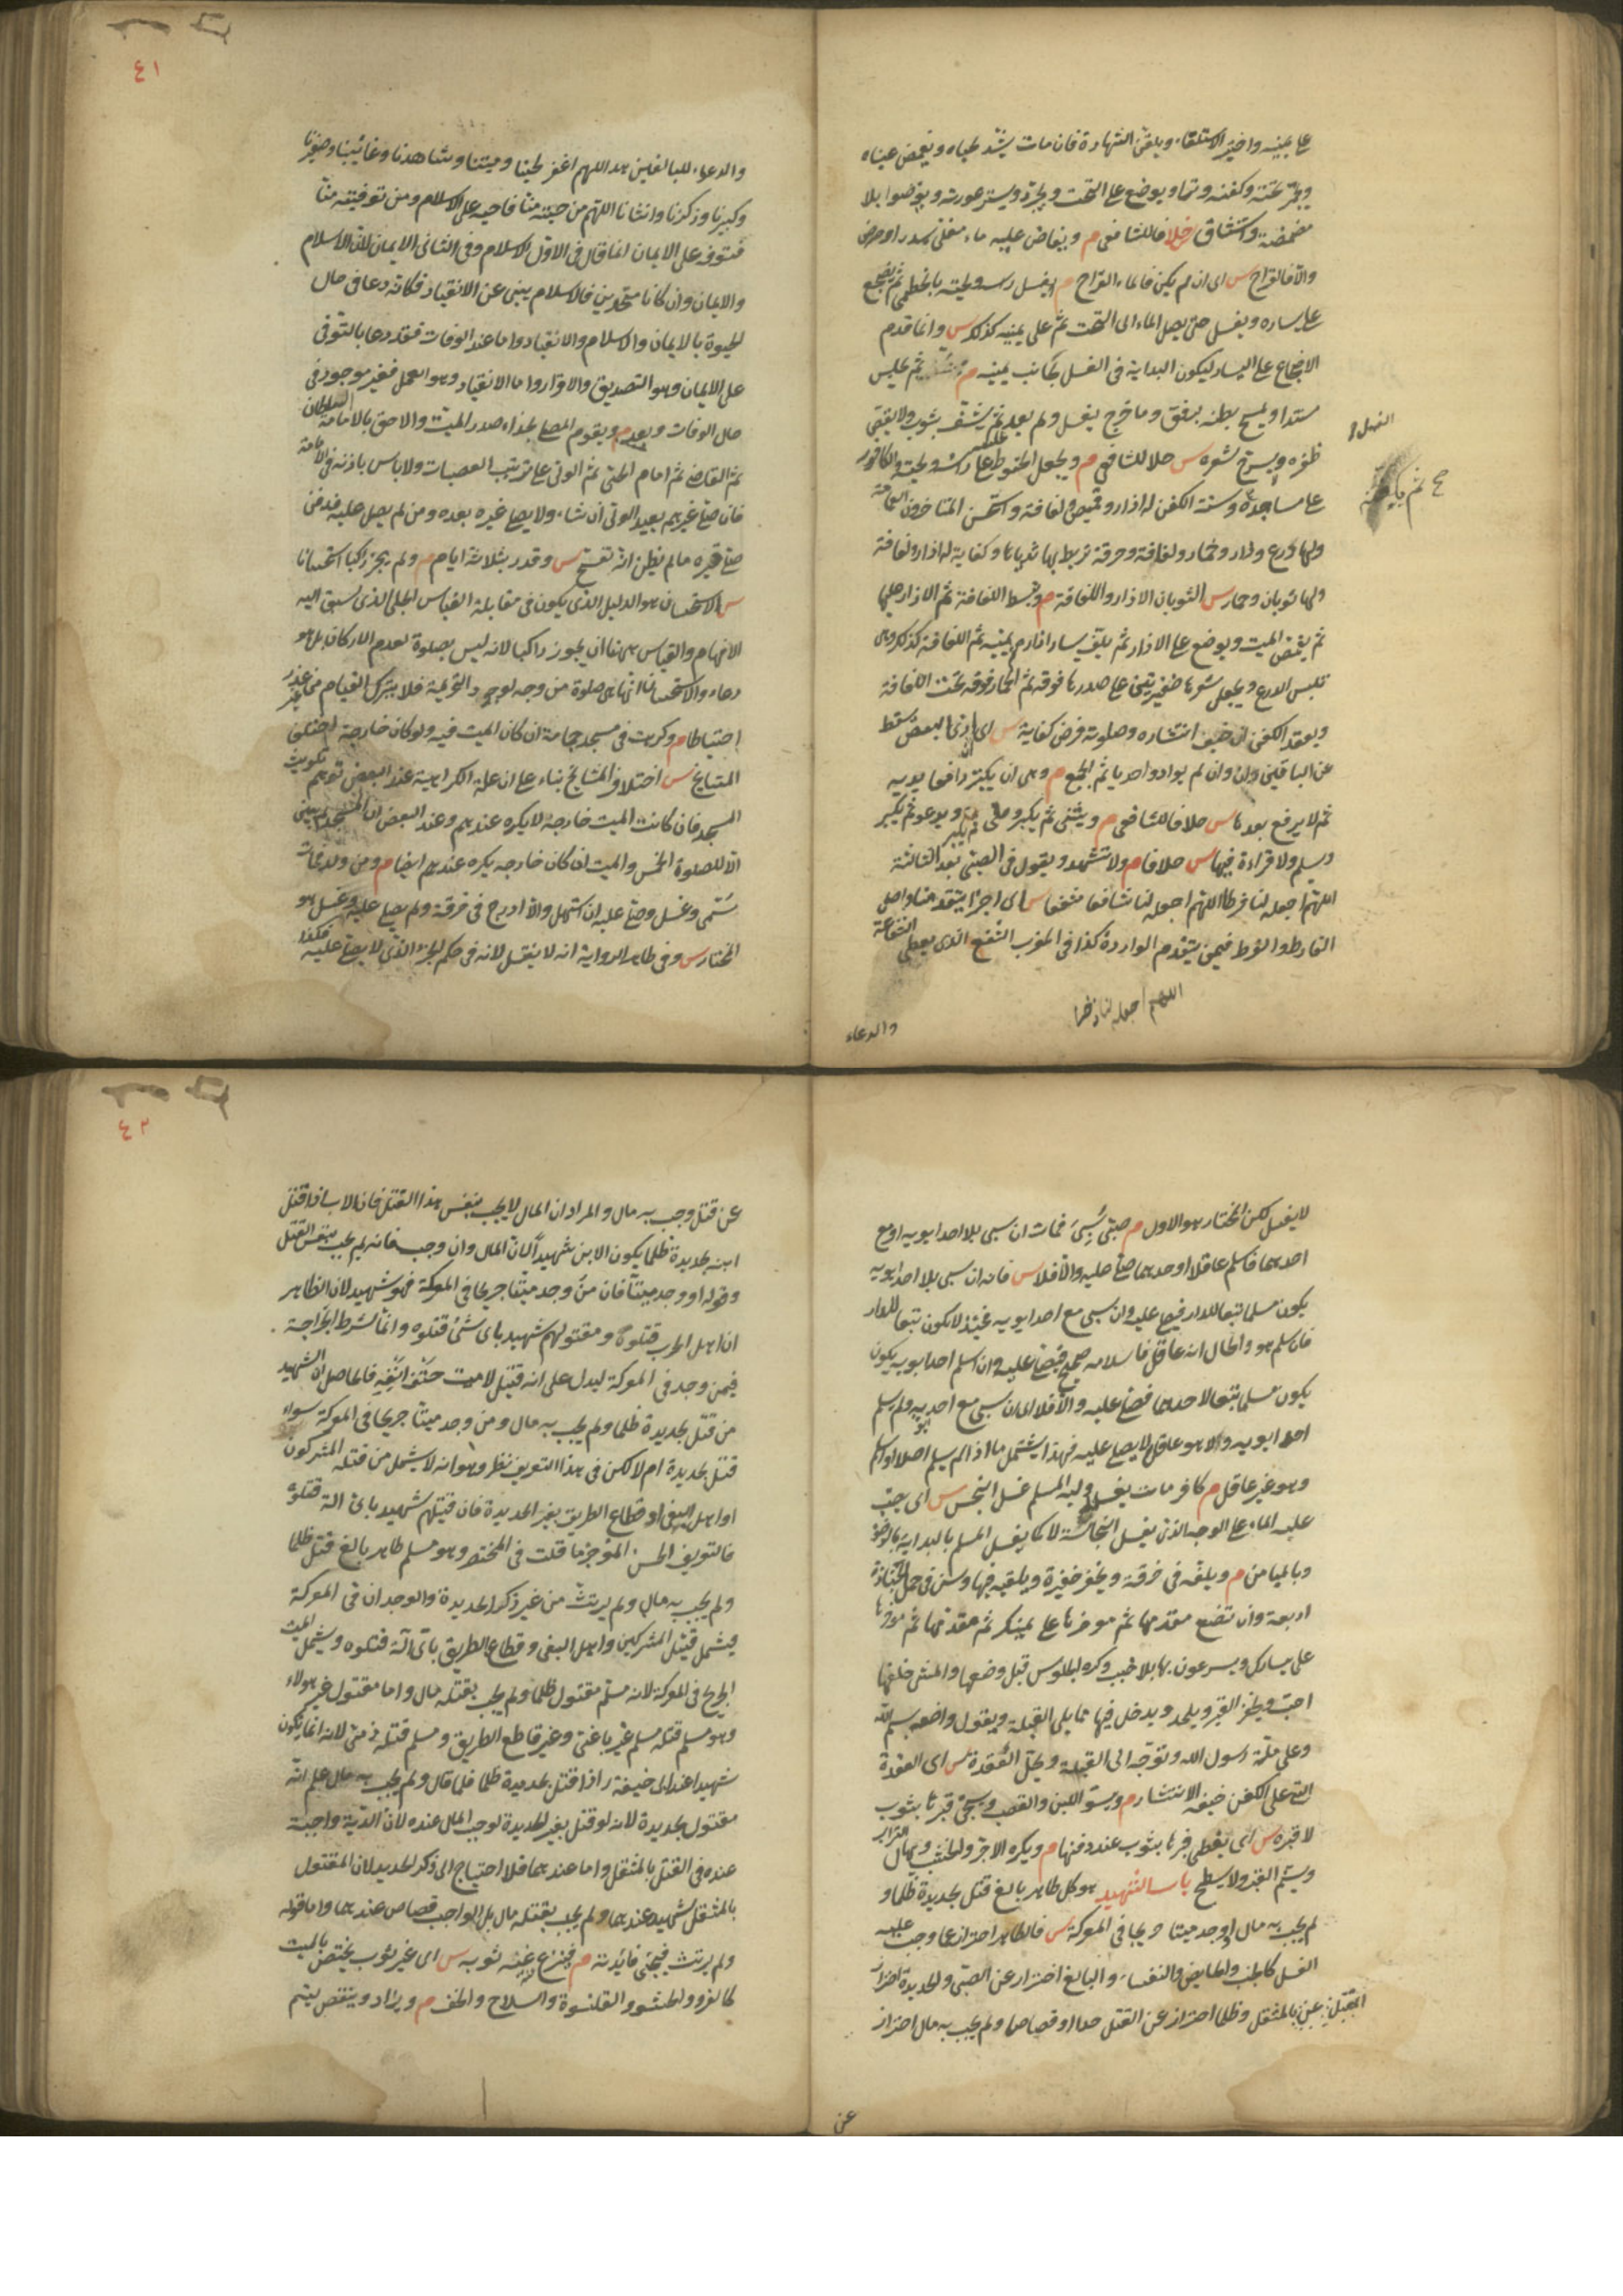 على يمينه واختير الاستلقاء ويلقن الشهادة فان مات يشد لحياه ويغمض عيناه
ويجمر تخته وكفنه وترا ويوضع على التخت ويجرد ويستر عورته ويوضوا بلا
مضمضة واستنشاق خلافا للشافعى م ويفاض عليه ماء مغلى بسدر او حرض
والا فالقراح س اى ان لم يكن فالماء القراح م ويغسل رأسه ولحيته بالخطمى ثم يضجع
على يساره ويغسل حتى يصل الماء الى التخت ثم على يمينه كذلك س وانما قدم
الاضجاع على اليسار ليكون البداية فى الغسل بجانب يمينه م ثم يجلس
مسندا ويمسح بطنه برفق وما خرج يغسل ولم يعد ثم ينشف بثوب ولا يقص
الغسل
ظفره ويسرح شعره س خلافا للشافعى م ويجعل الحنوط على رأسه ولحيته والكافور
على مساجده وسنة الكفن له ازار وقميص ولفافة واستحسن المتاخرون العمامة
ولها درع وازار وخمار ولفافة وخرقة تربط بها ثدياها وكفاية له ازار ولفافة
ولها ثوبان وخمار س الثوبان الازار واللفافة م وتبسط اللفافة ثم الازار عليها
ثم يقمص الميت ويوضع على الازار ثم يلف يسار ازاره ثم يمينه ثم اللفافة كذلك وهى
تلبس الدرع ويجعل شعرها ضفيرتين على صدرها فوقه ثم الخمار فوقه تحت اللفافة
ويعقد الكفن ان خيف انتشاره وصلوته فرض كفاية س اى ان ادى البعض سقط
عن الباقين وان لم يؤد واحد ياثم الجميع م وهى ان يكبر رافعا يديه
ثم لا يرفع بعدها س خلافا للشافعى م ويثنى ثم يكبر وصلى ثم يكبر ويدعو ثم يكبر
ويسلم ولا قراءة فيها س خلافا م ولا تشهد ويقول فى الصبى بعد الثالثة
اللهم اجعله لنا فرطا اللهم اجعله لنا شافعا مشفعا س اى اجرا يتقدمنا واصل
الفارط والفرط فيمن يتقدم الواردة كذا فى المغرب المشفع الذى يعطى الشفاعة
اللهم اجعله لنا ذخرا
والدعاء
٤١
والدعاء للبالغين هذا اللهم اغفر لحينا وميتنا وشاهدنا وغائبنا وصغيرنا
وكبيرنا وذكرنا وانثانا اللهم من احييته منا فاحيه على الاسلام ومن توفيته منا
فتوفه على الايمان انما قال فى الاول الاسلام وفى الثانى الايمان لان الاسلام
والايمان وان كانا متحدين فالاسلام ينبئ عن الانقياد فكانه دعا فى حال
الحيوة بالايمان والاسلام والانقياد واما عند الوفات فقد دعا بالتوفى
على الايمان وهو التصديق والاقرار واما الانقياد وهو العمل فغير موجود فى
حال الوفات وبعده م ويقوم المصلى بحذاء صدر الميت والاحق بالامامة السلطان
ثم القاضى ثم امام الحى ثم الولى على ترتيب العصبات ولا باس باذنه فى الامامة
فان صلى غيرهم يعيد الولى ان شاء ولا يصلى غيره بعده ومن لم يصل عليه فدفن
صلى على قبره ما لم يظن انه تفسخ س وقدر بثلاثة ايام م ولم يجز راكبا استحسانا
س الاستحسان هو الدليل الذى يكون فى مقابلة القياس الجلى الذى يسبق اليه
الافهام والقياس ههنا ان يجوز راكبا لانه ليس بصلوة لعدم الاركان بل هو
دعاء والاستحسان انها صلوة من وجه لوجود التحريمة فلا يترك القيام من غير عذر
احتياطا م وكرهت فى مسجد جماعة ان كان الميت فيه ولو كان خارجه اختلف
المشايخ س اختلاف المشايخ بناء على ان علة الكراهية عند البعض توهم تلويث
المسجد فان كانت الميت خارجة لا يكره عندهم وعند البعض ان المسجد لم يبنى
الا للصلوة الخمس والميت ان كان خارجه يكره عندهم ايضا م ومن ولد فمات
سمى وغسل وصلى عليه ان استهل والا ادرج فى خرقة ولم يصل عليه وغسل هو
المختار س وفى ظاهر الرواية انه لا يغسل لانه فى حكم الجزء الذى لا يصلى عليه فكذا
لا يغسل لكن المختار هو الاول م صبى سبى فمات ان سبى بلا احد ابويه او مع
احدهما فاسلم عاقلا او احدهما صلى عليه والا فلا س فانه ان سبى بلا احد ابويه
يكون مسلما تبعا للدار فيصلى عليه وان سبى مع احد ابويه فحينئذ لا يكون تبعا للدار
فان اسلم هو والحال انه عاقل فاسلامه صحيح فيصلى عليه وان اسلم احد ابويه يكون
يكون مسلما تبعا لاحدهما فيصلى عليه والا فلا اى ان سبى مع احد ابويه ولم يسلم
احد ابويه ولا هو عاقل لا يصلى عليه فهذا يشتمل ما اذا لم يسلم اصلا او اسلم
وهو غير عاقل م كافر مات يغسل وليه المسلم غسل النجس س اى يصب
عليه الماء على الوجه الذى يغسل النجاسة لا كما يغسل المسلم بالبداية بالوضوء
وبالميامن م ويلفه فى خرقة ويحفر حفيرة ويلقيه فيها وسن فى حمل الجنازة
اربعة وان تضع مقدمها ثم موخرها على يمينك ثم مقدمها ثم موخرها
على يسارك ويسرعون بها بلا خبب وكره الجلوس قبل وضعها والمشى خلفها
احب ويحفر القبر ويلحد ويدخل فيها مما يلى القبلة ويقول واضعه بسم الله
وعلى ملة رسول الله ونوجه الى القبلة ويحل العقدة س اى العقدة
التى على الكفن خيفة الانتشار م ويسوى اللبن والقصب ويسجى قبرها بثوب
لا قبره س اى يغطى قبرها بثوب عند دفنها م ويكره الاجر والخشب ويهال التراب
ويسنم القبر ولا يسطح باب الشهيد هو كل طاهر بالغ قتل بحديدة ظلما و
لم يجب به مال او وجد ميتا جريحا فى المعركة س فالطاهر احتراز عما وجب عليه
الغسل كالجنب والحايض والنفساء والبالغ احتراز عن الصبى والحديدة احتراز
عن القتل بالمثقل وظلما احتراز عن القتل حدا او قصاصا ولم يجب به مال احتراز
عن
٤٢
عن قتل وجب به مال والمراد ان المال لا يجب بنفس هذا القتل فان الاب اذا قتل
ابنه بحديدة ظلما يكون الابن شهيدا لان المال وان وجب فانه لم يجب بنفس القتل
وقوله او وجد ميتا فان من وجد ميتا جريحا فى المعركة فهو شهيد لان الظاهر
ان اهل الحرب قتلوه ومقتولهم شهيد باى شئ قتلوه وانما شرط الجراحة
فيمن وجد فى المعركة ليدل على انه قتيل لا ميت حتف انفه فالحاصل ان الشهيد
من قتل بحديدة ظلما ولم يجب به مال ومن وجد ميتا جريحا فى المعركة سواء
قتل بحديدة ام لا لكن فى هذا التعريف نظر وهو انه لا يشمل من قتله المشركون
او اهل البغى او قطاع الطريق بغير الحديدة فان قتيلهم شهيد باى الة قتلوه
فالتعريف الحسن الموجز ما قلت فى المختصر وهو مسلم طاهر بالغ قتل ظلما
ولم يجب به مال ولم يرتث من غير ذكر الحديدة والوجدان فى المعركة
فيشمل قتيل المشركين واهل البغى وقطاع الطريق باى آلة قتلوه ويشمل الميت
الجريح فى المعركة لانه مسلم مقتول ظلما ولم يجب بقتله مال واما مقتول غير هولاء
وهو مسلم قتله مسلم غير باغى وغير قاطع الطريق ومسلم قتله ذمى لانه انما يكون
شهيدا عند ابى حنيفة ر اذا قتل بحديدة ظلما فلما قال ولم يجب به مال علم انه
مقتول بحديدة لانه لو قتل بغير الحديدة لوجب المال عنده لان الدية واجبة
عنده فى القتل بالمثقل واما عندهما فلا احتياج الى ذكر الحديد لان المقتول
بالمثقل شهيد عندهما ولم يجب بقتله مال بل الواجب قصاص عندهما واما قوله
ولم يرتث فيجئ فائدته م فينزع عنه غير ثوبه س اى غير ثوب يختص بالميت
كالفرو والحشو والقلنسوة والسلاح والخف م ويزاد وينقص ليتم